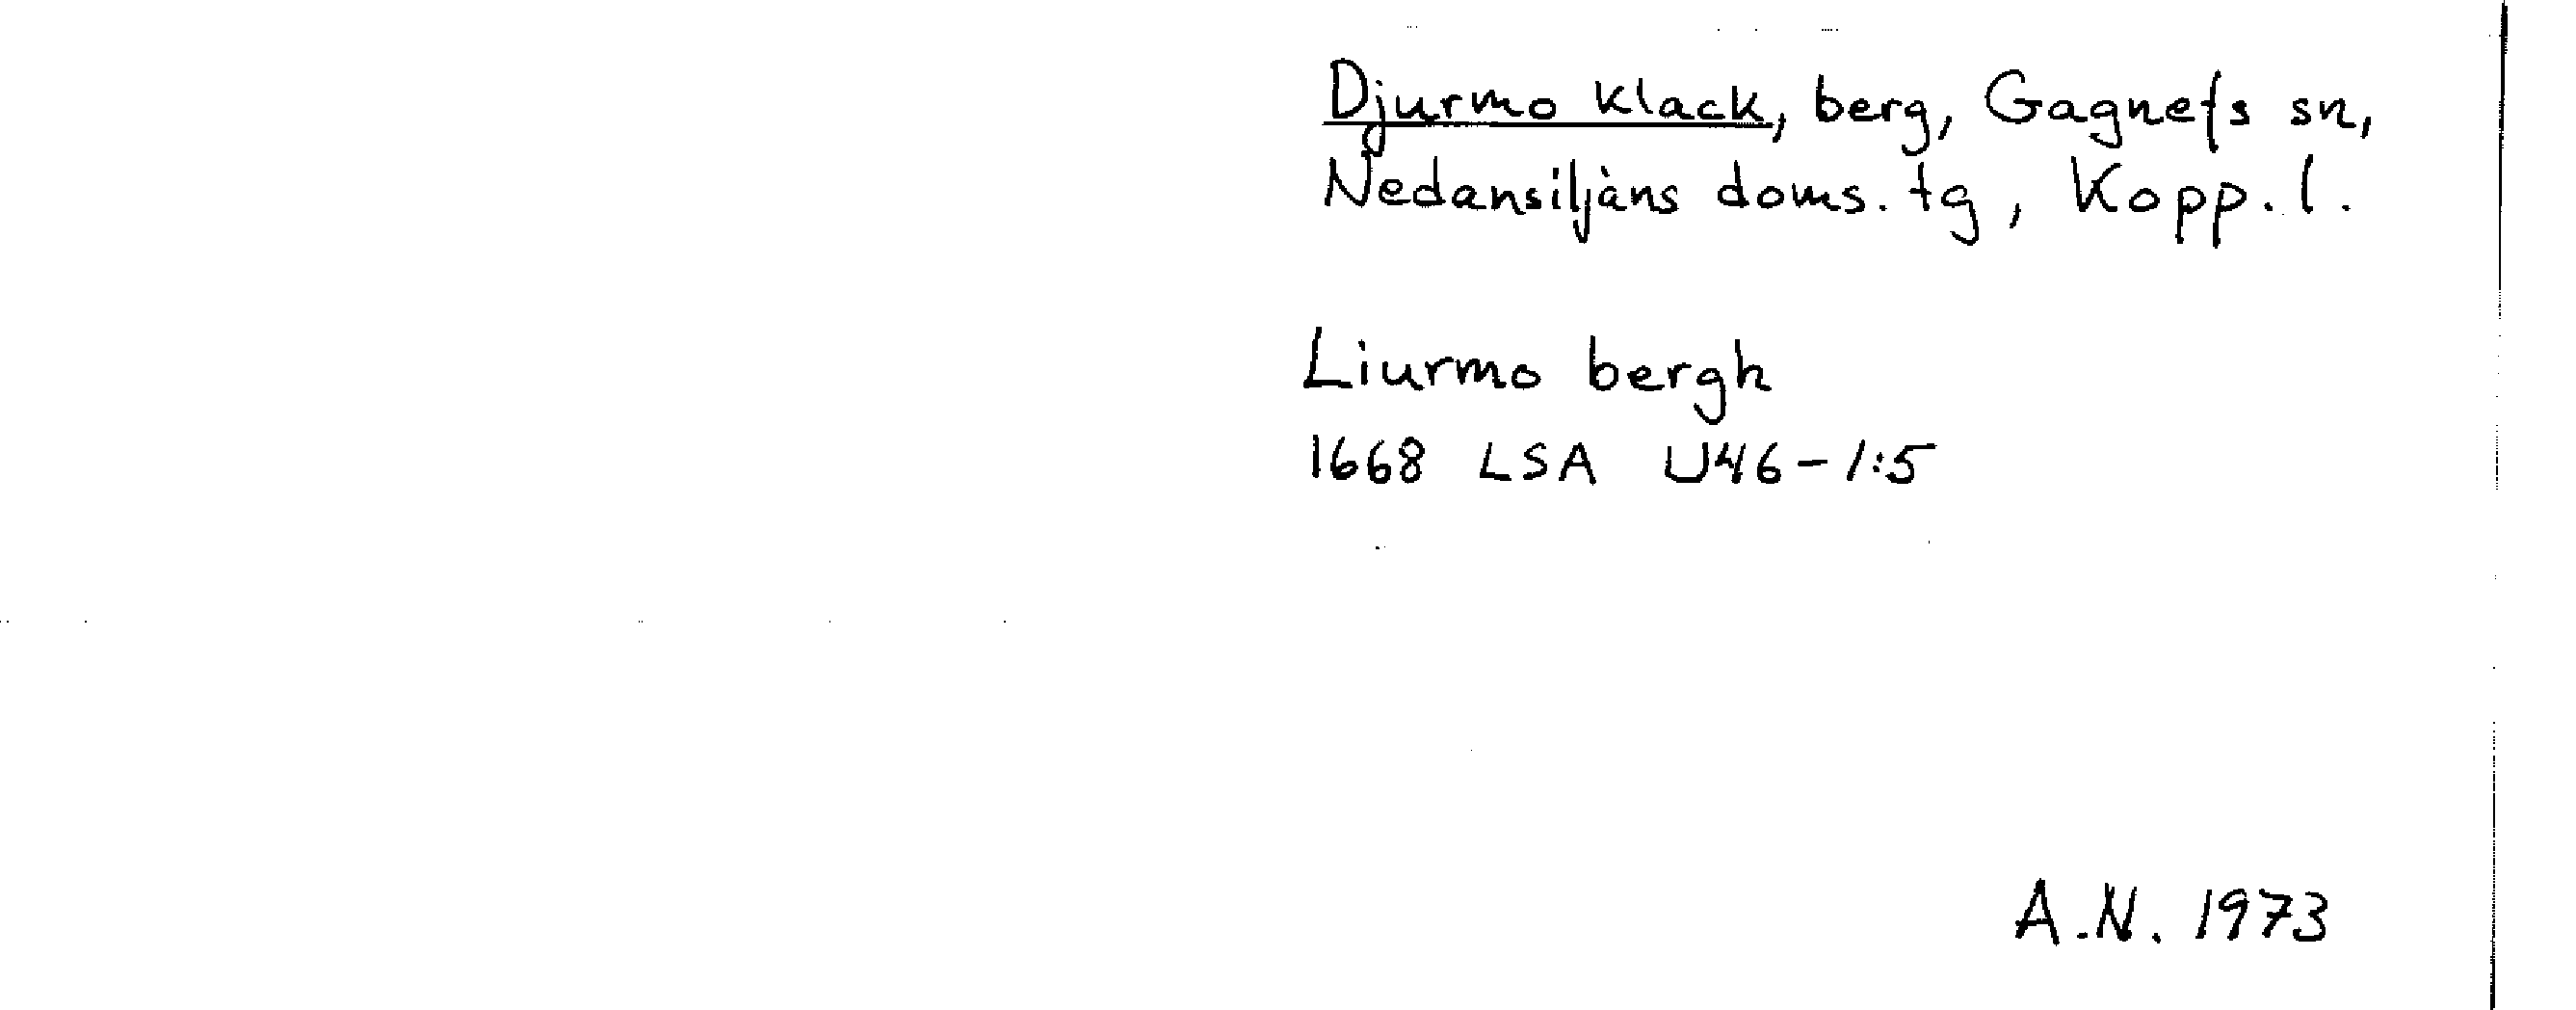 Djurmo klack, berg, Gagnefs sn,
Nedansiljans doms. tg, Kopp. l.
Liurmo bergh
1668 LSA U46-1:5
A.N. 1973